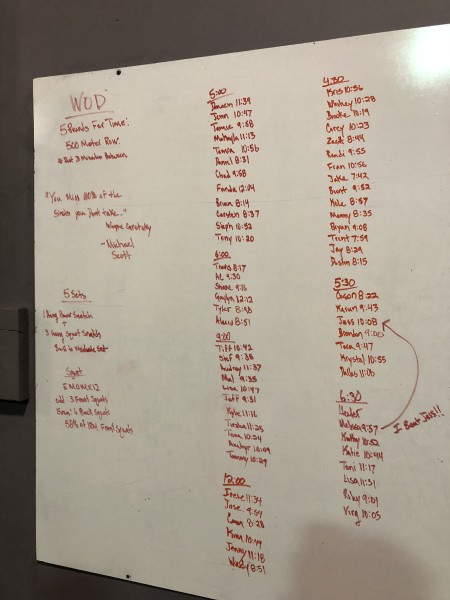 WOD
5 Rounds For Time:
500 Meter Row
* Rest 3 Minutes Between
"You Miss 100% of the
Shots you Don't take..."
Wayne Gretzky
- Michael
Scott
5 Sets
1 Hang Power Snatch
+
3 Hang Squat Snatch
Squat
EMOMx12
odd: 3 Front Squats
Even: 4 Back Squats
50% of 1RM Front Squats
5:00
11:39
John 10:47
9:58
Michayla 11:13
Tamra 10:56
8:31
Chad 9:58
Fonda 12:04
Brian 8:14
Carsten 8:37
Steph 10:52
Tony 10:20
6:00
Travis 8:17
AL 9:30
Shane 9:16
12:12
Tyler 8:48
Alexis 8:51
9:00
Tiff 10:42
Stef 9:38
Audrey 11:37
Mal 9:35
Lisa 10:47
Jeff 9:31
Kylie 11:16
11:25
Tina 10:24
10:09
Tammy 10:29
12:00
Irene 11:34
Jose 9:54
8:28
Kim 10:49
Jenny 11:18
Wendy 8:51
4:30
Kris 10:36
Whitney 10:28
Brooke 10:19
Corey 10:23
Brett 8:44
Randi 9:55
Fran 10:56
Jake 7:42
Brent 9:52
Kyle 8:57
Manny 8:35
Bryan 9:08
Trent 7:59
Jay 8:29
Dustin 8:15
5:30
Carson 8:22
Karen 9:43
Jess 10:08
Brandon 9:00
Tara 9:47
Krystal 10:55
Dallas 11:00
6:30
Lester
Melissa 9:57
I Beat Jess!!
Kathy 10:52
Katie 10:44
Toni 11:17
Lisa 11:31
Riley 9:01
Virg 10:05